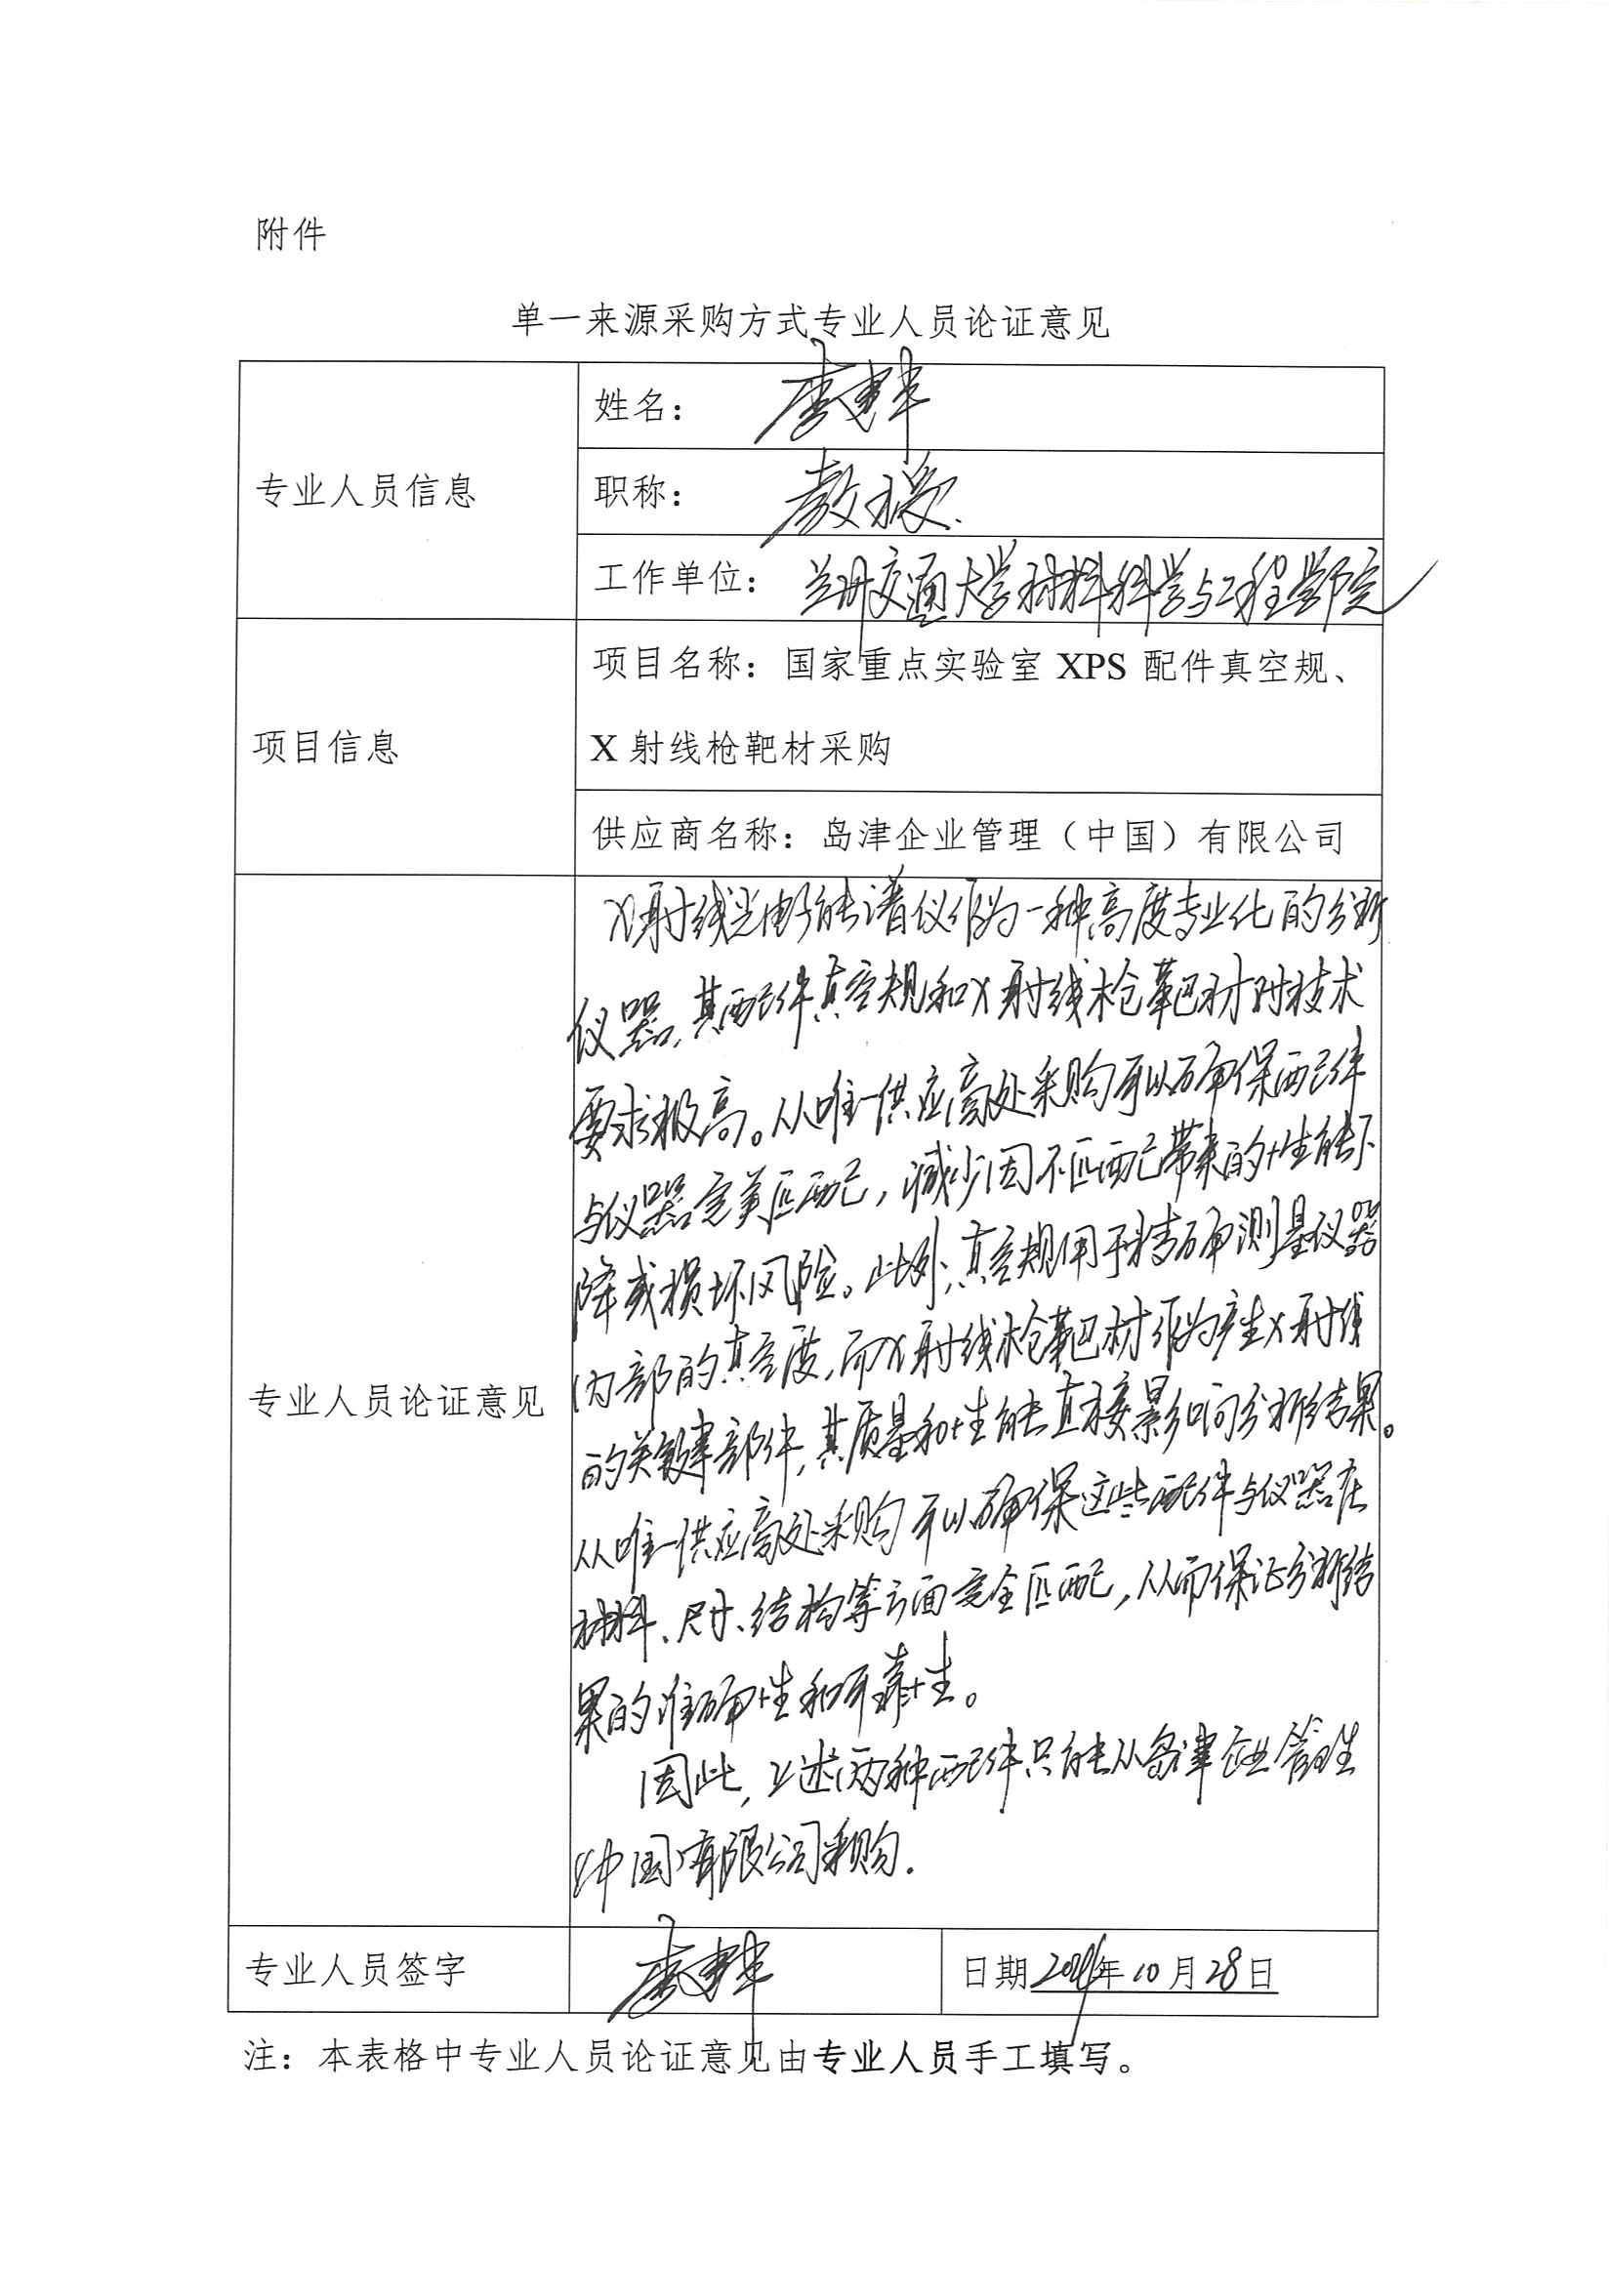 附件
单一来源采购方式专业人员论证意见
专业人员信息
姓名：
职称：教授.
工作单位：兰州交通大学材料科学与工程学院
项目信息
项目名称：国家重点实验室 XPS 配件真空规、
X 射线枪靶材采购
供应商名称：岛津企业管理（中国）有限公司
专业人员论证意见
X射线光电子能谱仪作为一种高度专业化的分析
仪器，其配件真空规和X射线枪靶材对技术
要求极高。从唯一供应商处采购可以确保配件
与仪器完美匹配，减少因不匹配带来的性能下
降或损坏风险。此外，真空规用于精确测量仪器
内部的真空度，而X射线枪靶材作为产生X射线
的关键部件，其质量和性能直接影响分析结果。
从唯一供应商处采购可以确保这些配件与仪器在
材料、尺寸、结构等方面完全匹配，从而保证分析结
果的准确性和可靠性。
因此，上述两种配件只能从岛津企业管理
（中国）有限公司采购.
专业人员签字
日期2024年10月28日
注：本表格中专业人员论证意见由专业人员手工填写。